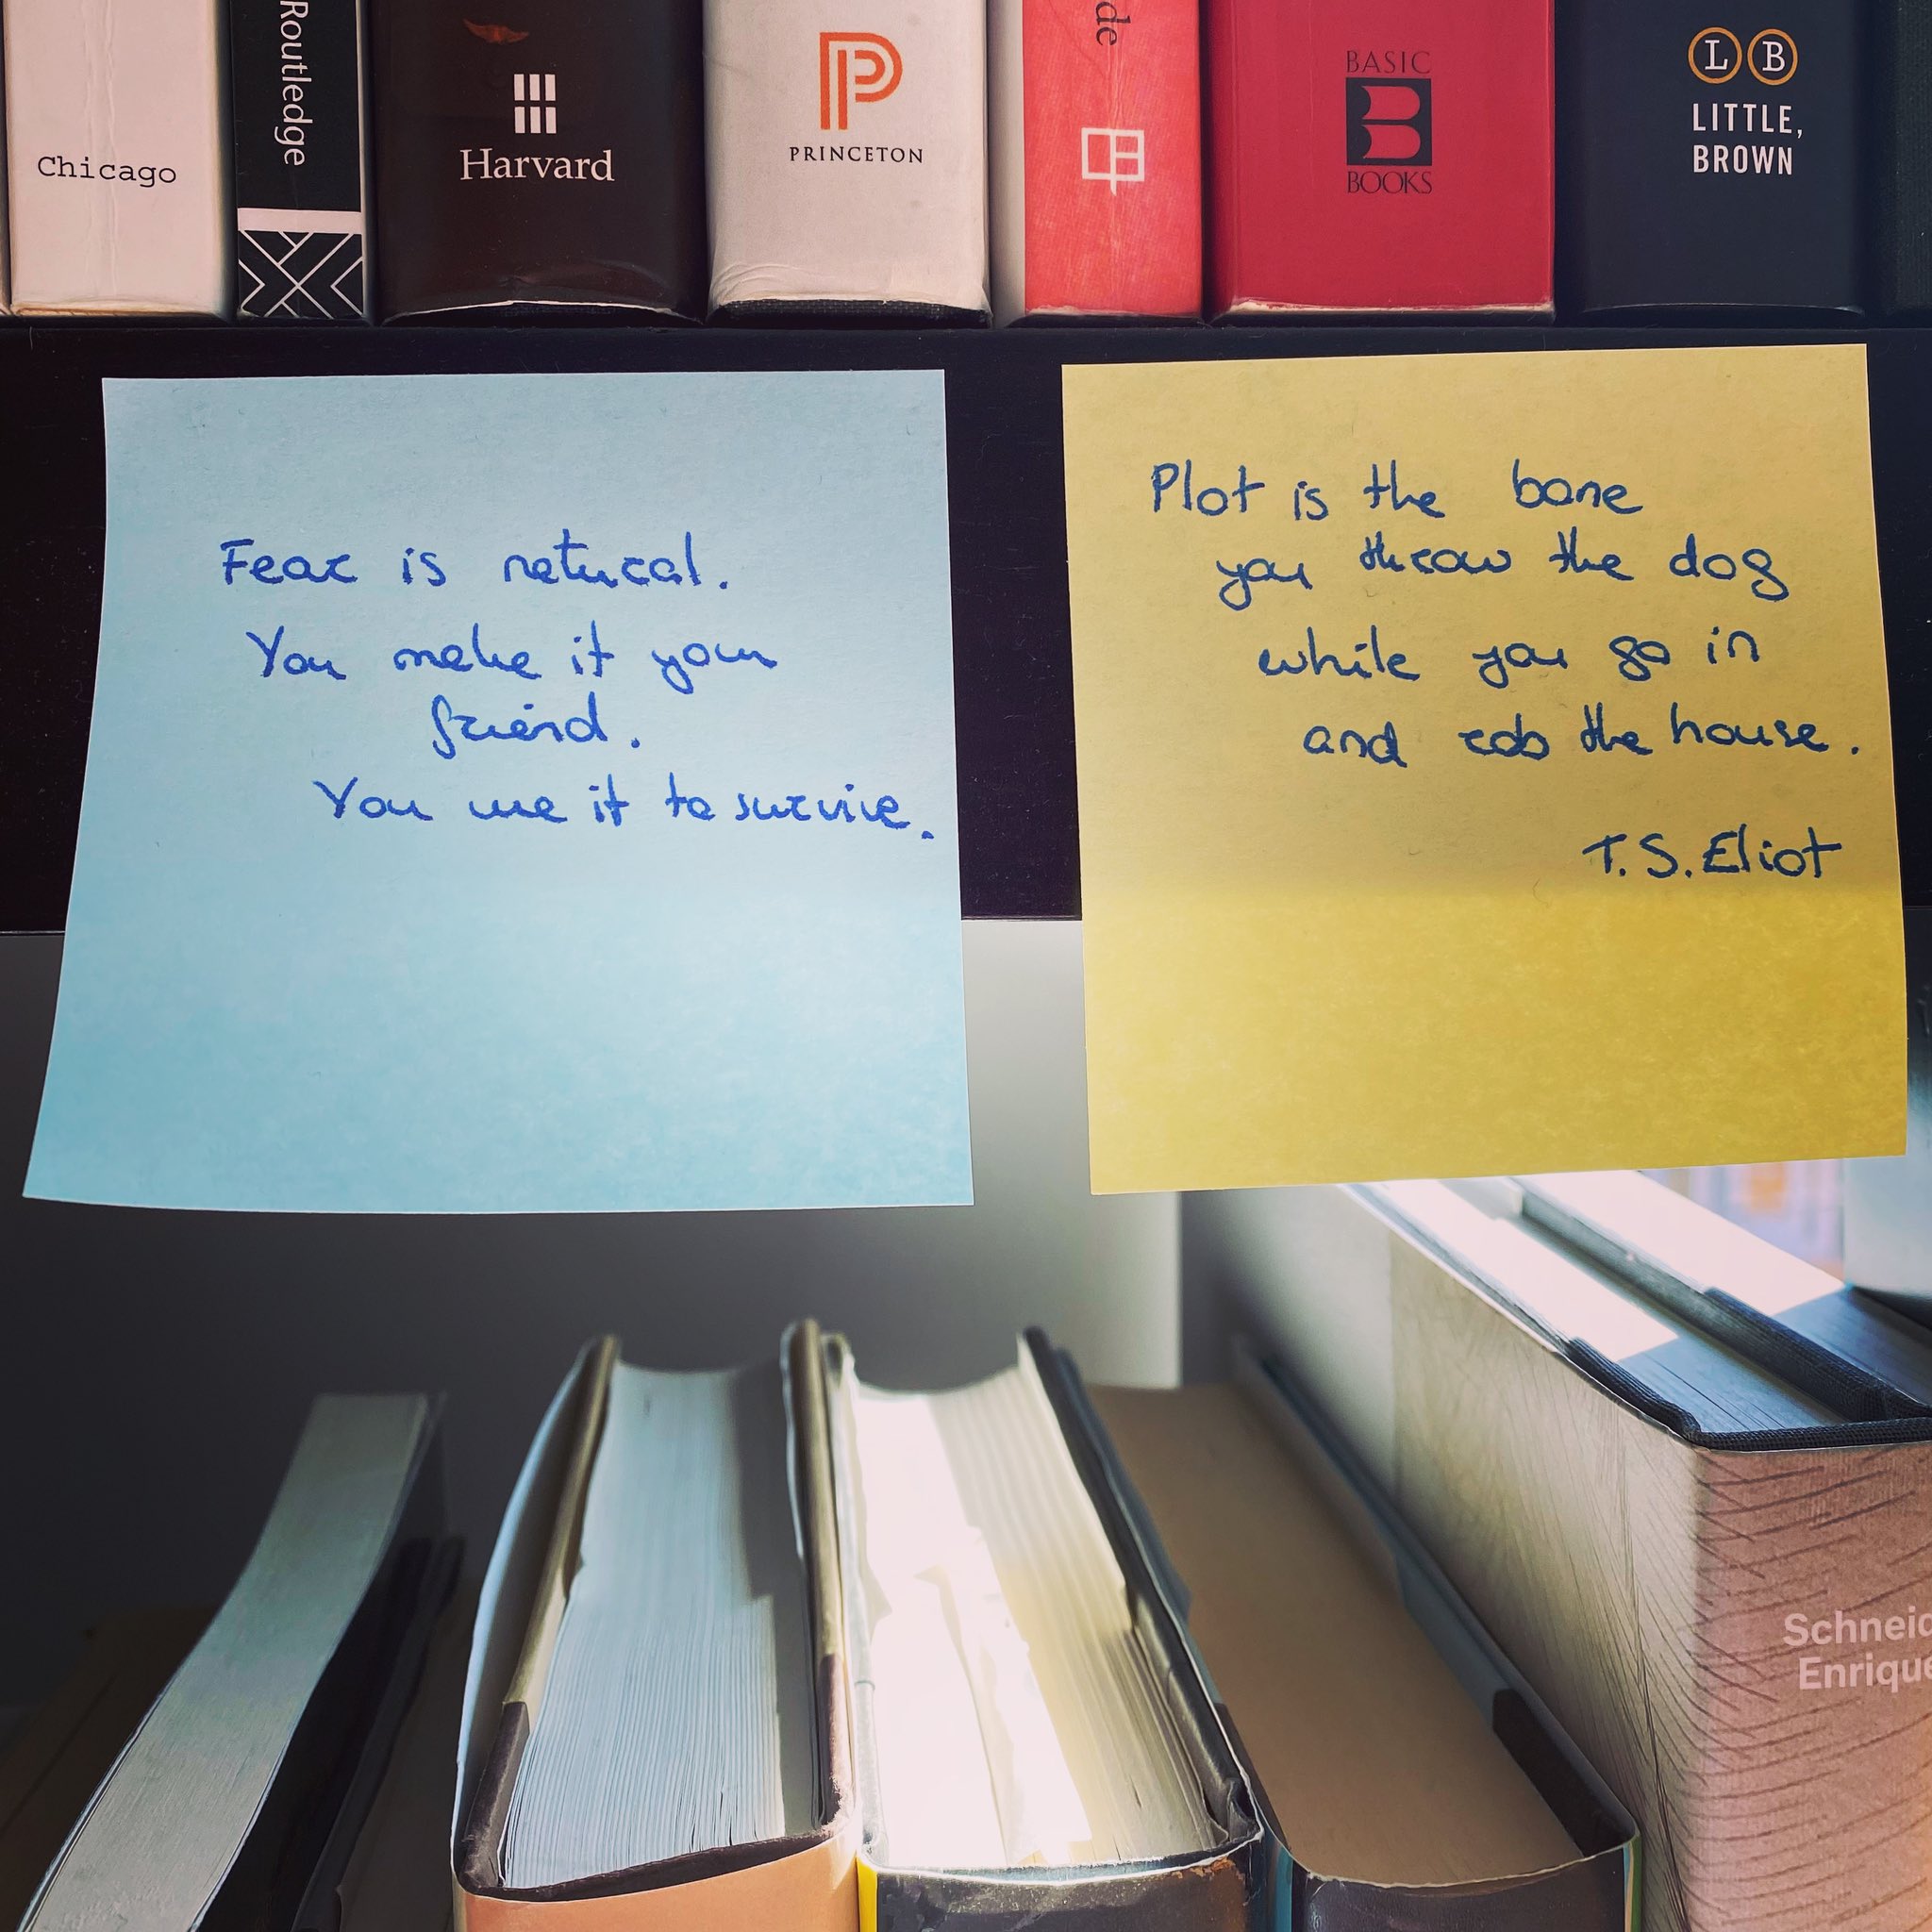 Chicago
Routledge
Harvard
PRINCETON
de
BASIC
B
BOOKS
L B
LITTLE,
BROWN
Fear is natural.
You make it your
friend.
You use it to survive.
Plot is the bone
you throw the dog
while you go in
and rob the house.
T.S. Eliot
Schneid
Enrique